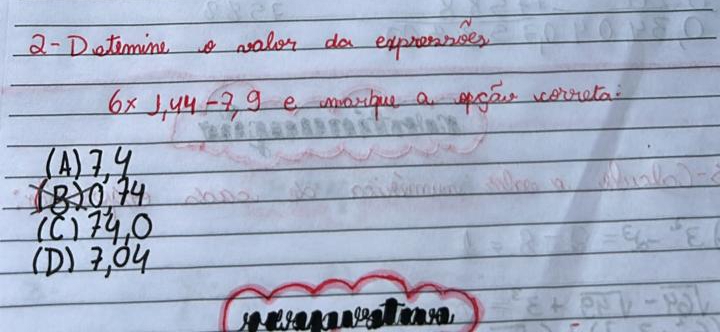 2- Detemine o valor da expressões
6x 1,44 - 7,9 e marque a opção correta:
(A) 7,4
(B) 0,74
(C) 74,0
(D) 7,04